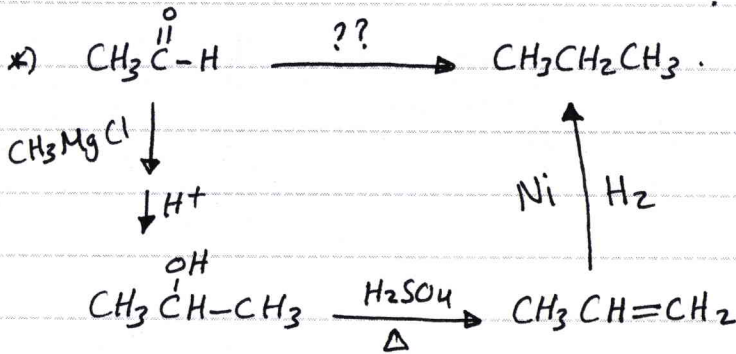 O
*) CH3C-H ?? CH3CH2CH3.
CH3MgCl
H+
Ni H2
OH
CH3CH-CH3 H2SO4 CH3CH=CH2
Δ